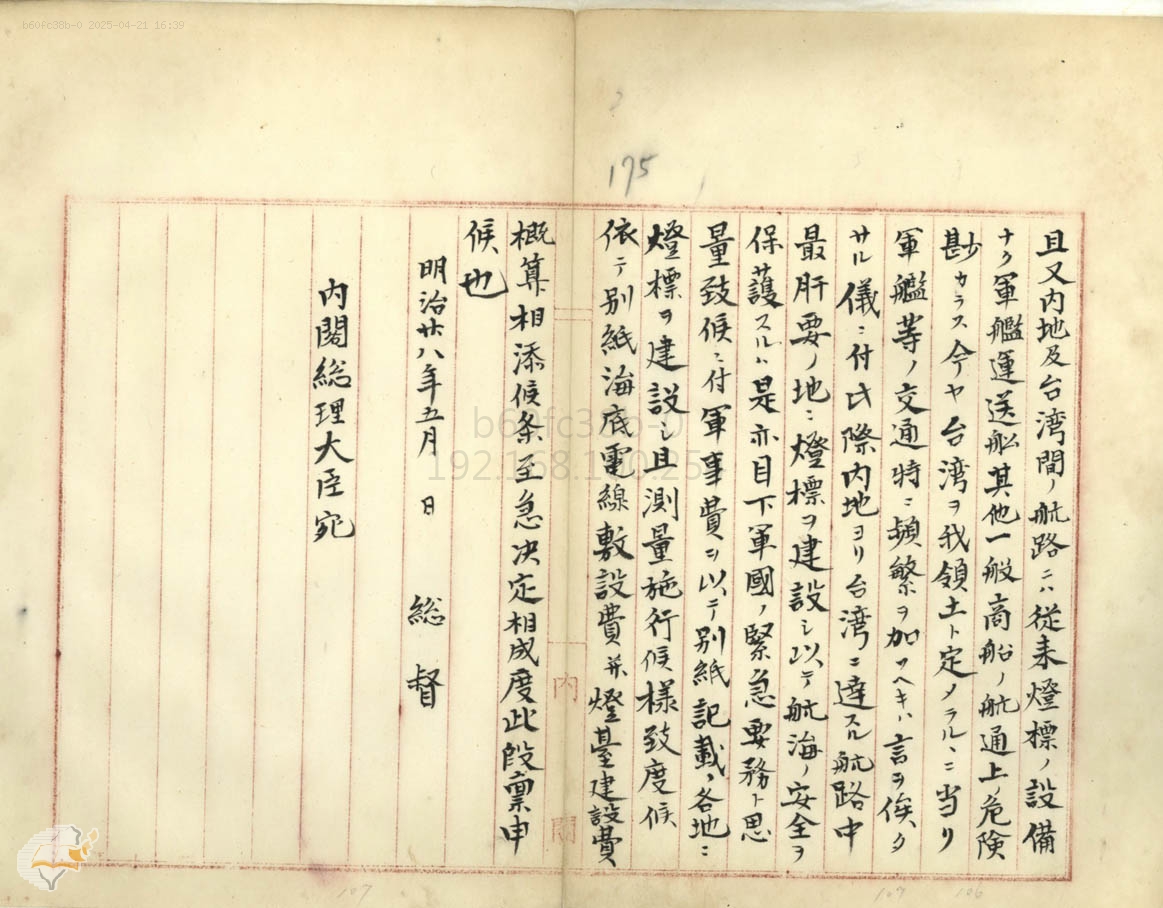 b60fc38b-0 2025-04-21 16:39
175
且又内地及台湾間ノ航路ニハ従来燈標ノ設備
ナク軍艦運送船其他一般商船ノ航通上危険
尠カラス今ヤ台湾ヲ我領土ト定メラルヽニ当リ
軍艦等ノ交通特ニ頻繁ヲ加フヘキハ言ヲ俟タ
サル儀ニ付此際内地ヨリ台湾ニ達スル航路中
最肝要ノ地ニ燈標ヲ建設シ以テ航海ノ安全ヲ
保護スルハ是亦目下軍國ノ緊急要務ト思
量致候ニ付軍事費ヲ以テ別紙記載ノ各地ニ
燈標ヲ建設シ且測量施行候様致度候
依テ別紙海底電線敷設費并燈臺建設費
概算相添候条至急决定相成度此段稟申
候也
明治廿八年五月 日 総督
内閣総理大臣宛
内閣
b60fc38b-0
107
107
106